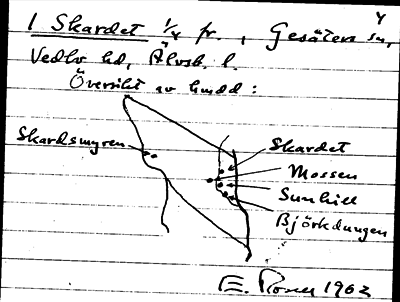 1 Skardet 1/4 fr., Gesäters sn,
Vedbo hd, Älvsb. l.
Översikt av hmdd:
Skardsmyren
Skardet
Mossen
Sunhill
Björkdungen
E. 1962